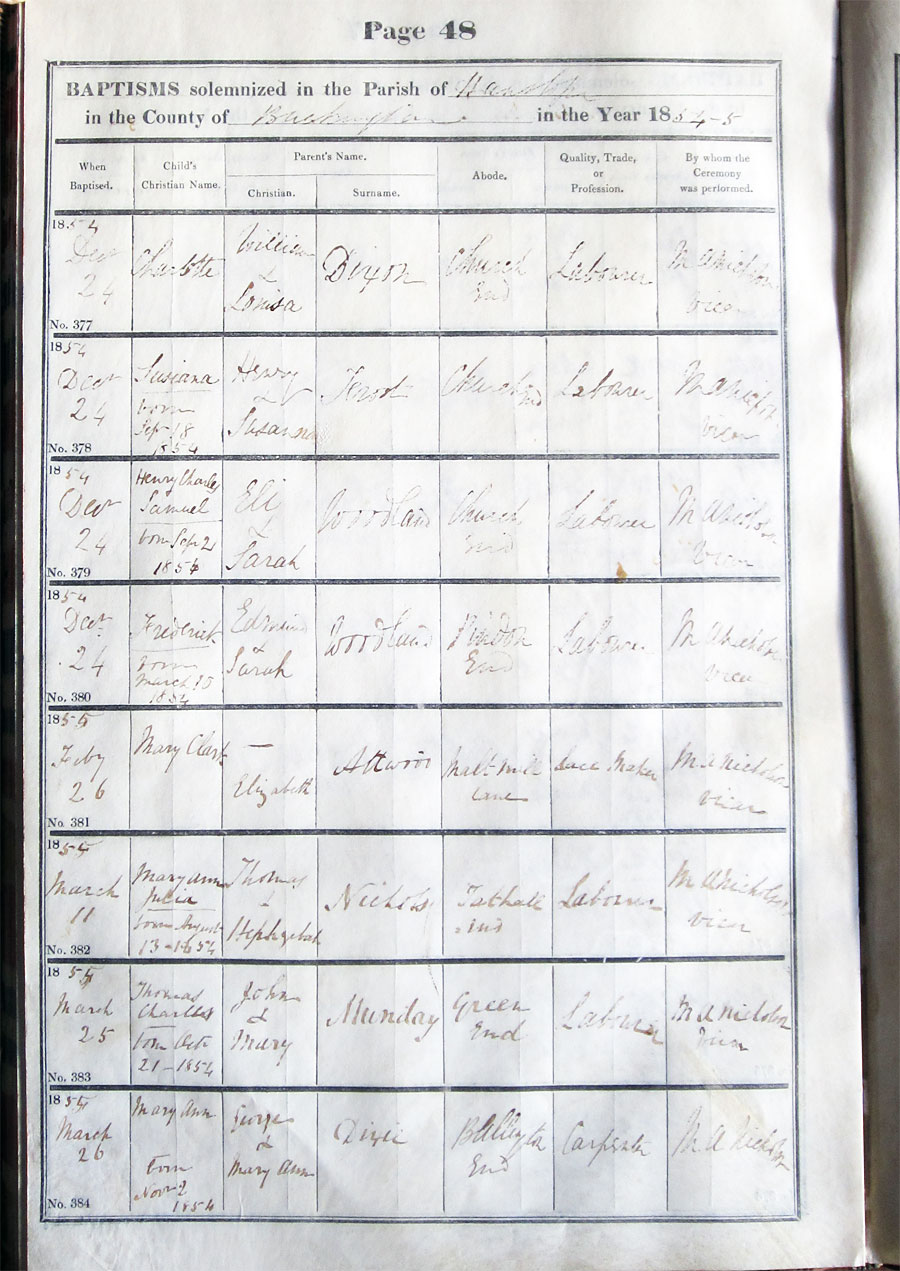 Page 48
BAPTISMS solemnized in the Parish of Hanslope
in the County of Buckingham in the Year 1854-5
When Baptised.
Child's Christian Name.
Parent's Name.
Christian.
Surname.
Abode.
Quality, Trade, or Profession.
By whom the Ceremony was performed.
1854
Decr 24
Charlotte
William & Louisa
Dixon
Church End
Labourer
M A Nicholson Vicar
No. 377
1854
Decr 24
Susiana
born Sepr 18 1854
Henry & Susanna
Church End
Labourer
M A Nicholson Vicar
No. 378
1854
Decr 24
Henry Charles Samuel
born Sepr 21 1854
Eli & Sarah
Woodland
Church End
Labourer
M A Nicholson Vicar
No. 379
1854
Decr 24
Frederick
born March 15 1854
Edmund & Sarah
Woodland
Pindon End
Labourer
M A Nicholson Vicar
No. 380
1855
Feby 26
Mary Clark
— Elizabeth
Attwood
Malt Mill Lane
Lace Maker
M A Nicholson Vicar
No. 381
1855
March 11
Mary Ann Julia
born August 13 - 1854
Thomas & Hephzebah
Nichols
Tathall End
Labourer
M A Nicholson Vicar
No. 382
1855
March 25
Thomas Charles
born Octr 21 - 1854
John & Mary
Munday
Green End
Labourer
M A Nicholson Vicar
No. 383
1855
March 26
Mary Ann
born Novr 2 1854
George & Mary Ann
End
Carpenter
M A Nicholson
No. 384